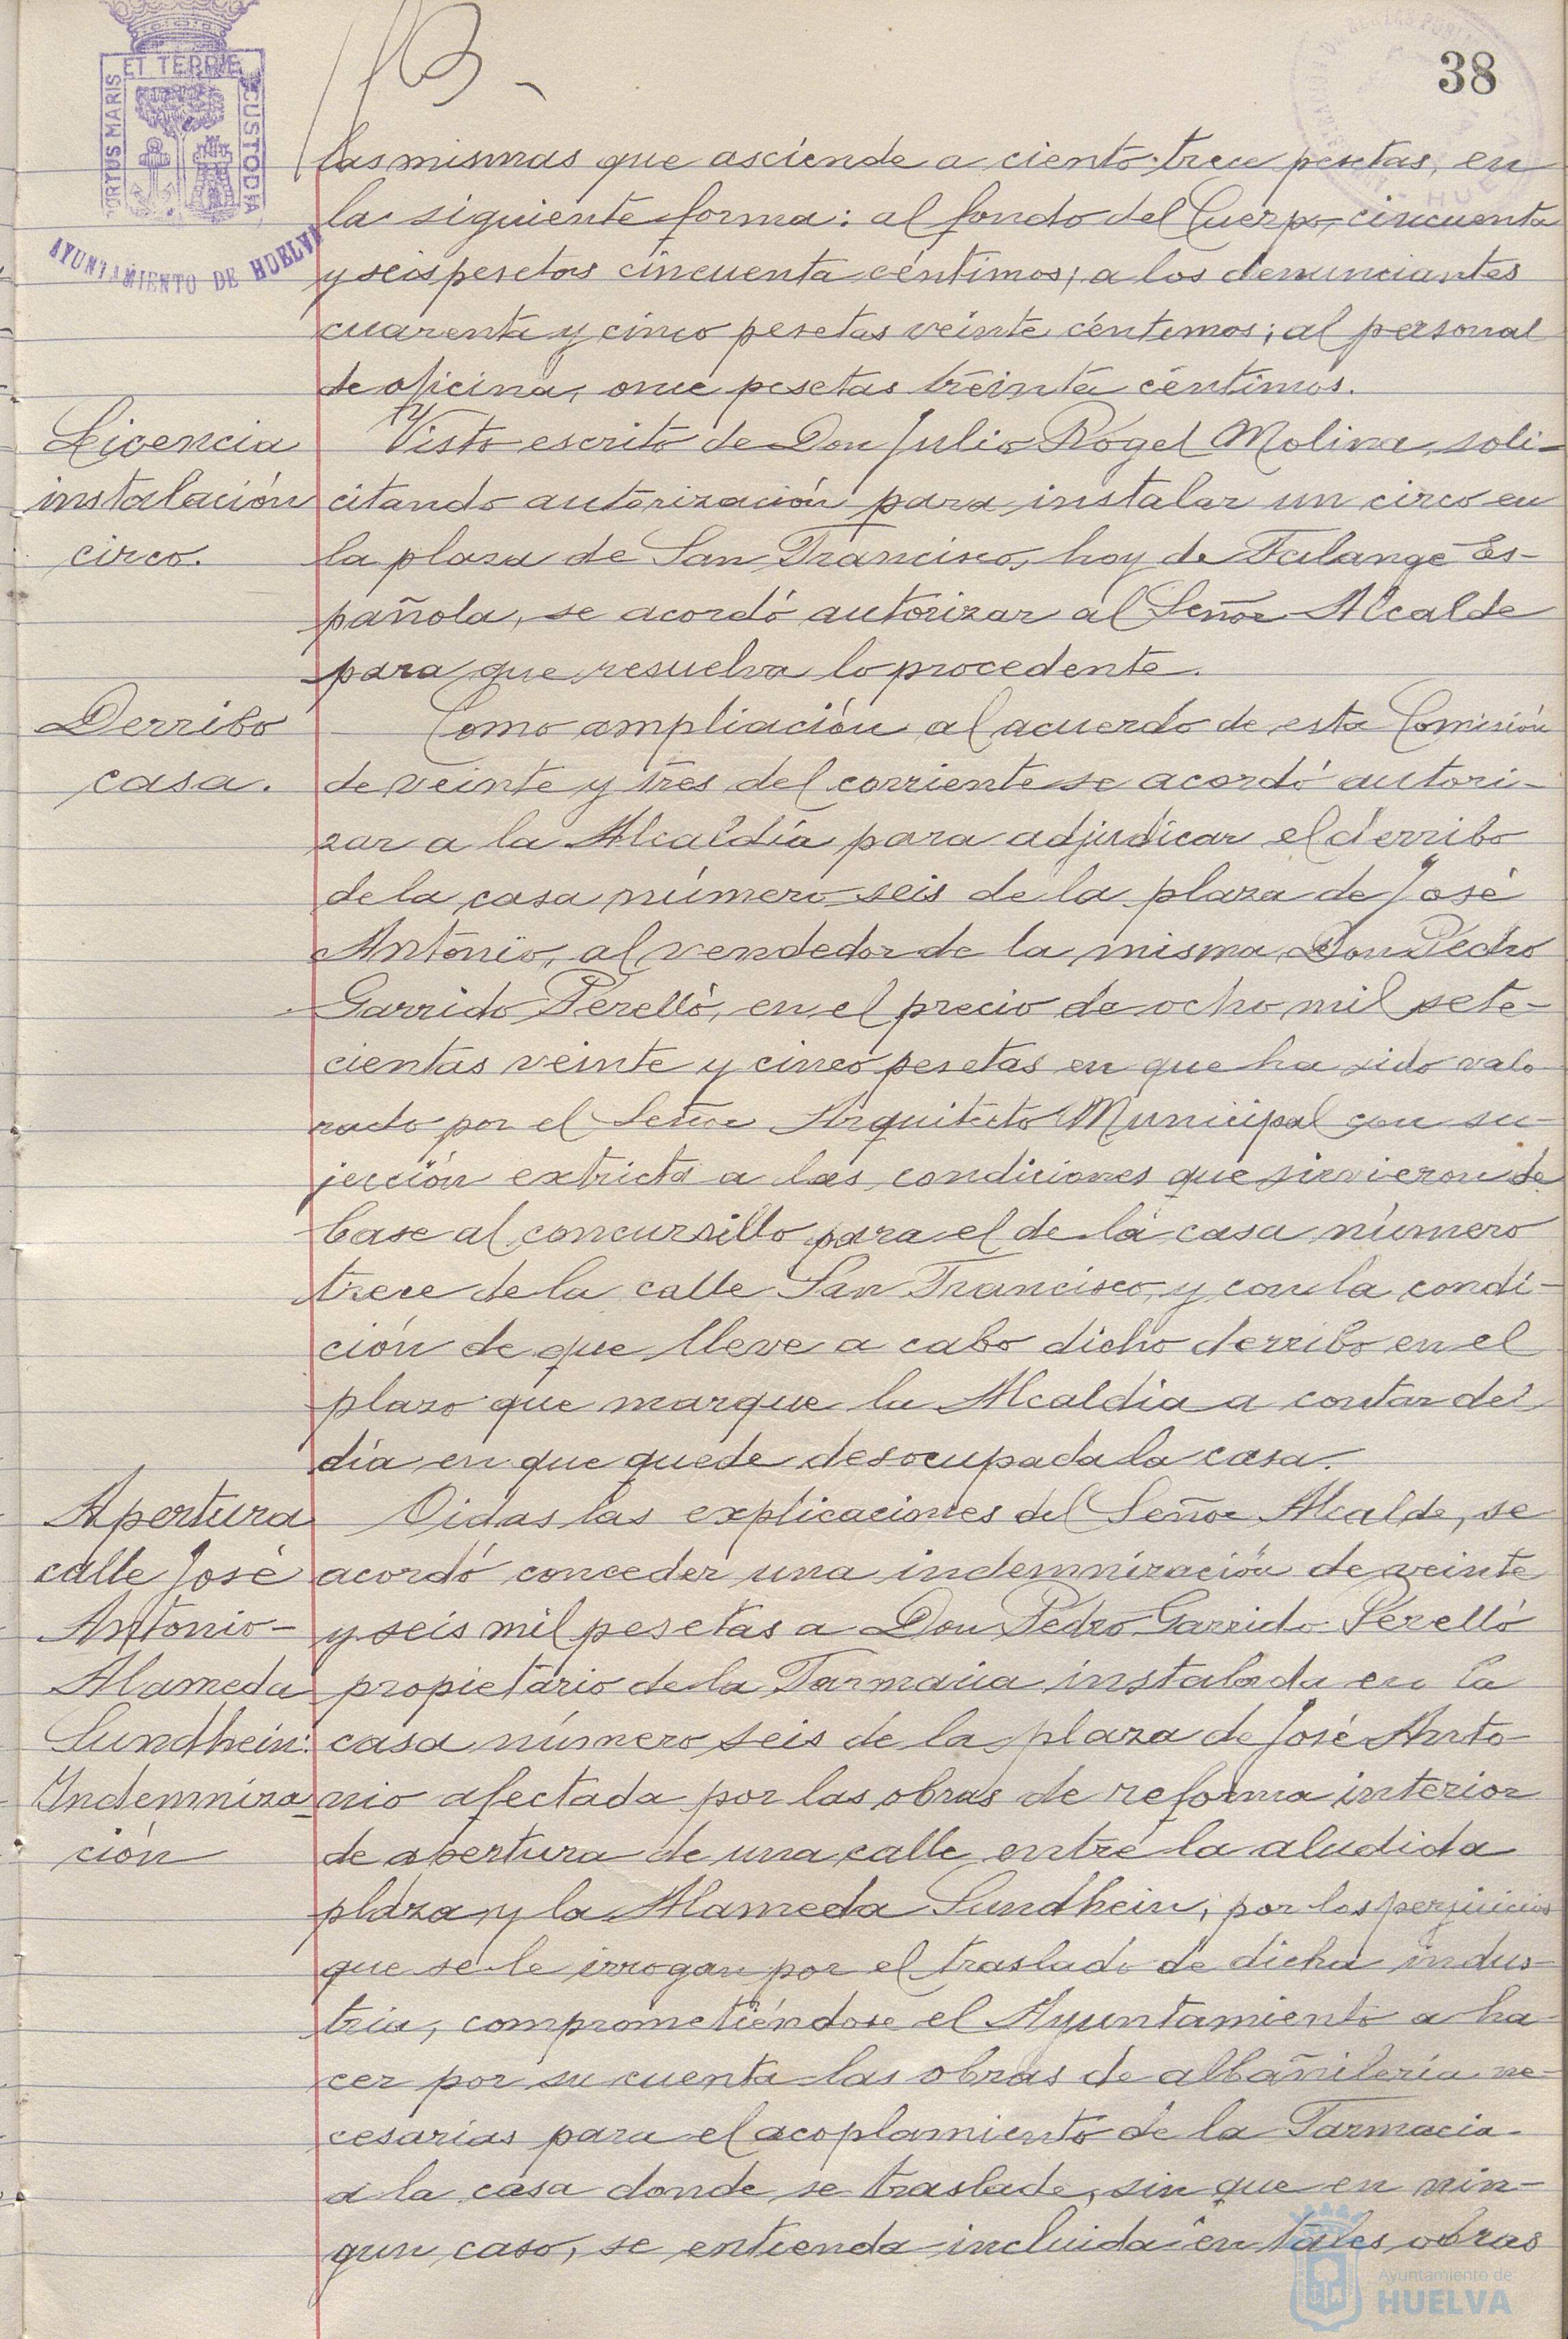 38
PORTUS MARIS ET TERRÆ CUSTODIA
AYUNTAMIENTO DE HUELVA
las mismas que asciende a ciento trece pesetas, en
la siguiente forma: al fondo del Cuerpo, cincuenta
y seis pesetas cincuenta céntimos; a los denunciantes
cuarenta y cinco pesetas veinte céntimos; al personal
de oficina, once pesetas treinta céntimos.
Licencia
instalación
circo.
Visto escrito de Don Julio Rogel Molina, soli-
citando autorización para instalar un circo en
la plaza de San Francisco, hoy de Falange Es-
pañola, se acordó autorizar al Señor Alcalde
para que resuelva lo procedente.
Derribo
casa.
Como ampliación al acuerdo de esta Comisión
de veinte y tres del corriente se acordó autori-
zar a la Alcaldía para adjudicar el derribo
de la casa número seis de la plaza de José
Antonio, al vendedor de la misma Don Pedro
Garrido Perelló, en el precio de ocho mil sete-
cientas veinte y cinco pesetas en que ha sido valo
rado por el Señor Arquitecto Municipal con su-
jección extricta a las condiciones que sirvieron de
base al concursillo para el de la casa número
trece de la calle San Francisco, y con la condi-
ción de que lleve a cabo dicho derribo en el
plazo que marque la Alcaldía a contar del
día en que quede desocupada la casa.
Apertura
calle José
Antonio-
Alameda
Sundhein:
Indemniza-
ción
Oidas las explicaciones del Señor Alcalde, se
acordó conceder una indemnización de veinte
y seis mil pesetas a Don Pedro Garrido Perelló
propietario de la Farmacia instalada en la
casa número seis de la plaza de José Anto-
nio afectada por las obras de reforma interior
de apertura de una calle entre la aludida
plaza y la Alameda Sundhein, por los perjuicios
que se le irrogan por el traslado de dicha indus-
tria, comprometiéndose el Ayuntamiento a ha-
cer por su cuenta las obras de albañilería ne-
cesarias para el acoplamiento de la Farmacia
a la casa donde se traslade, sin que en nin-
gun caso, se entienda incluida en tales obras
Ayuntamiento de
HUELVA